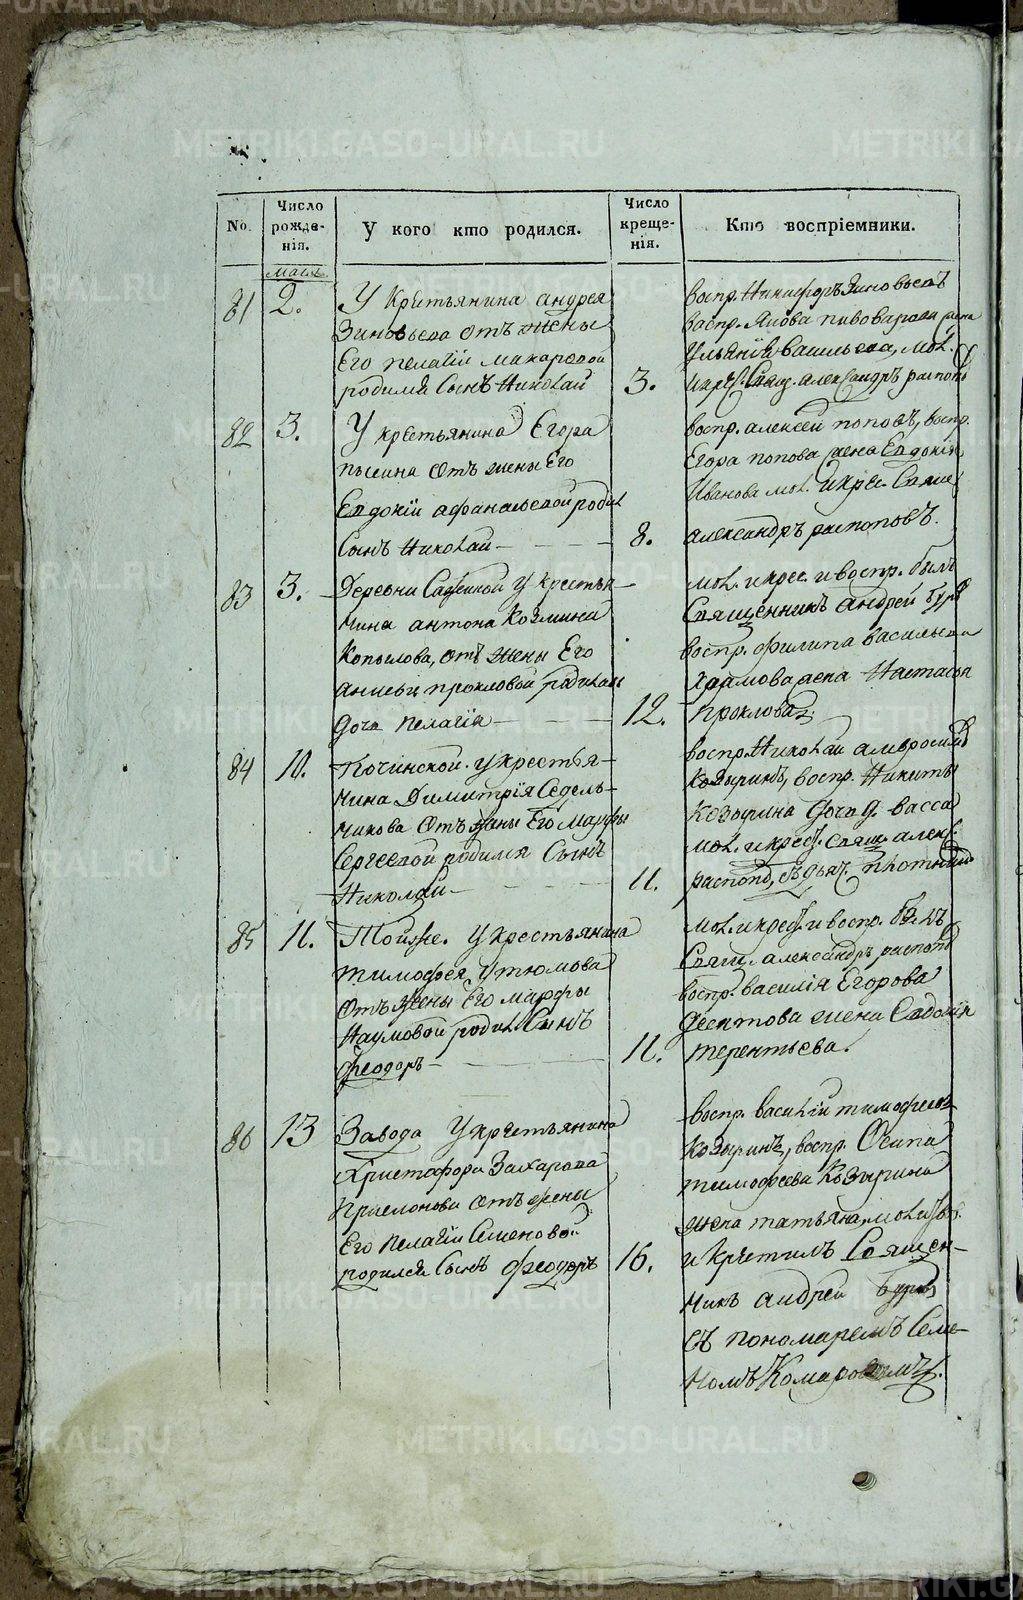 No.
Число рожде-нія.
У кого кто родился.
Число креще-нія.
Кто воспріемники.
маія
81
2.
У Крѣстьянина андрея
Зиновьева отъ жены
Его пелагіи макаровой
родился Сынъ Николай
3.
воспр. Никифоръ Зиновьевъ
воспр. Якова пивоварова жена
Ульянія васильева, мол.
икрес. Свящ. александръ распоп
82
3.
У крѣстьянина Егора
отъ жены Его
Евдокіи афанасьевой родил
Сынъ Николай
8.
воспр. алексей поповъ, воспр.
Егора попова жена Евдокія
Иванова мол. Икрес. Свящ
александръ распоповъ.
83
3.
Деревни У крестья
нина антона Козмина
Копылова, отъ жены Его
анисьи прокловой родилась
дочь пелагія
12.
мол. икрес. и воспр. былъ
Священникъ андрей
воспр. филипа васильева
Храмова жена Настасья
Проклова
84
10.
Точинской. у крестья-
нина Димитрія Седель-
никова отъ жены Его Марфы
Сергеевой родился Сынъ
Николай
11.
воспр. Николай амвросиев
Козыринъ, воспр. Никиты
Козырина дочь д. васса
мол. икрес. свящ. алекс.
распоп, съдьяч. плотник
85
11.
Тойже. У крестьянина
тимофея Утюмова
отъ жены Его марфы
Наумовой родил. Сынъ
феодоръ
11.
мол. икрес. и воспр. былъ
Свящ. александръ распоп
воспр. василія Егорова
жена Евдокія
терентьева.
86
13
Завода У крѣстьянина
Христафора Захарова
отъ жены
Его пелагіи Семеновой
родился Сынъ феодоръ
16.
воспр. василій тимофеев
Козыринъ, воспр. Осипа
тимофеева Козырина
жена татьяна
и крѣстилъ Священ-
никъ андрей
съ пономаремъ Семе-
номъ Комаровымъ.
METRIKI.GASO-URAL.RU